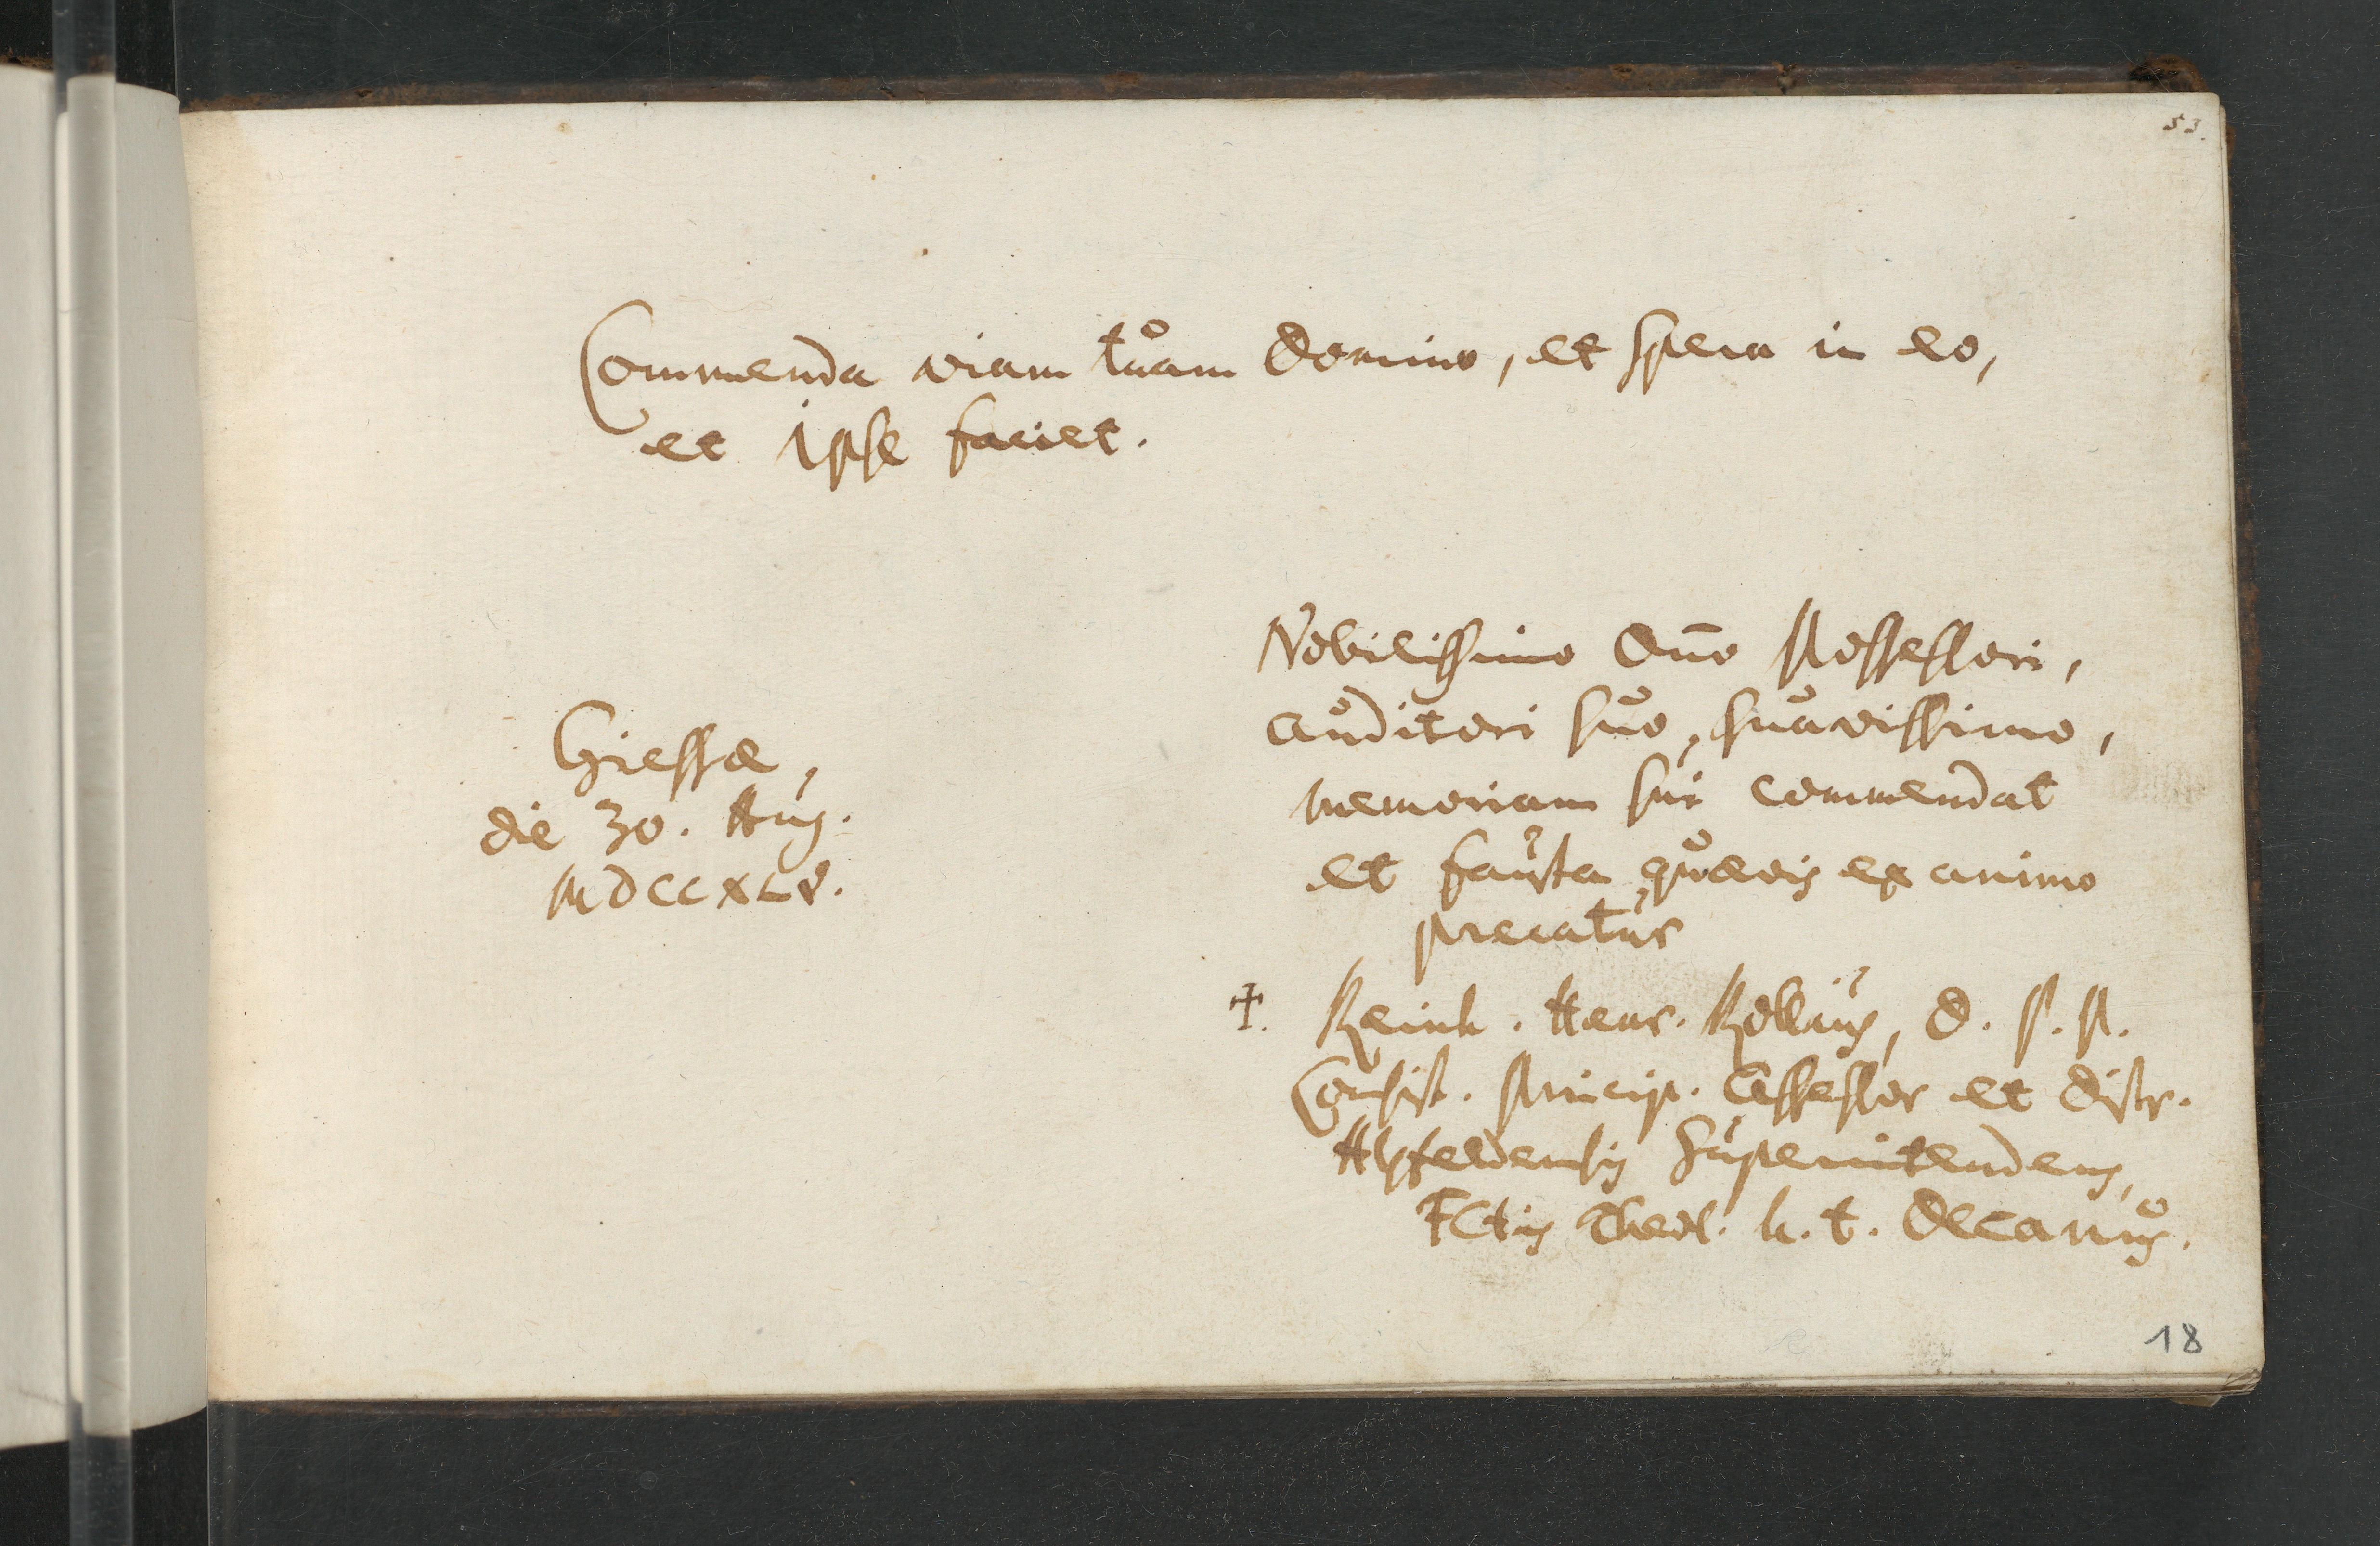 53.
Commenda viam tuam Domino, et spera in eo,
et Ipse faciet.
Nobilissimo Dño Possessori,
auditori suo suavissimo,
memoriam sui commendat
et fausta quævis ex animo
precatur
Giessæ,
die 30. Aug.
MDCCXLV.
✝. Reinh. Henr. Rollius, D. P. P.
Consist. Princip. Assessor et distr.
Alsfeldensis Superintendens,
Fctis Theol. h. t. Decanus.
18